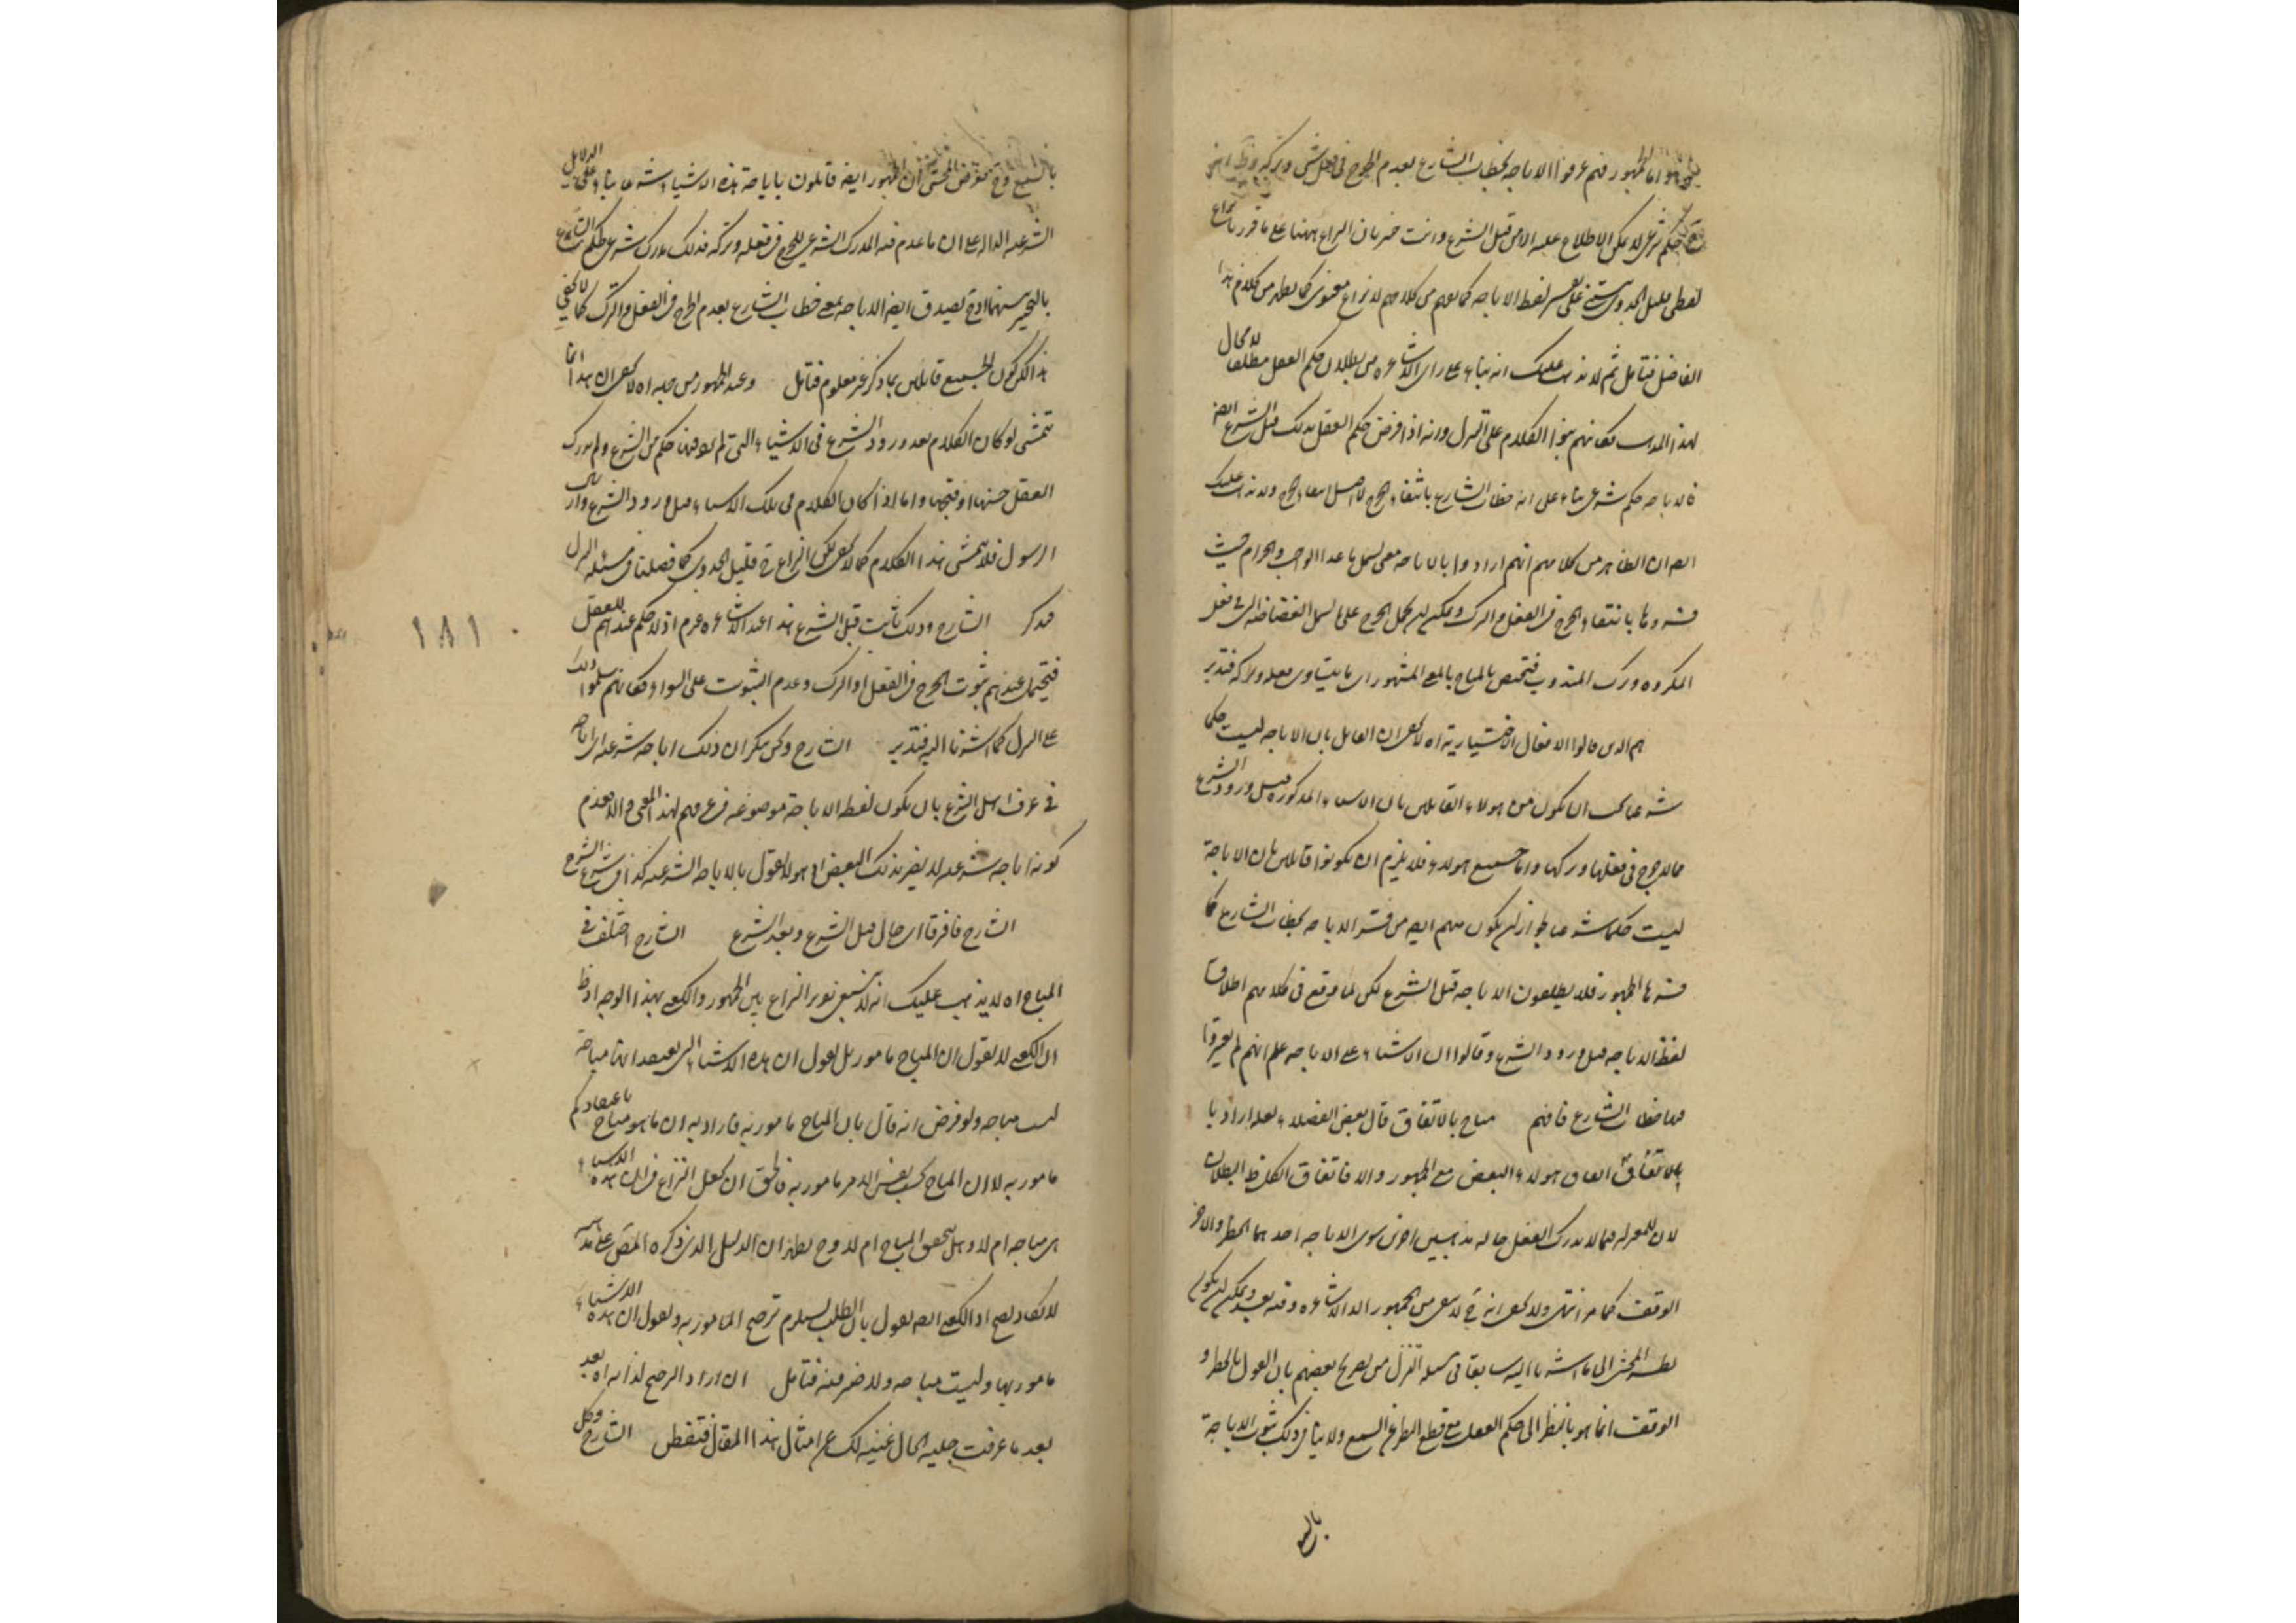 واما الجمهور فهم عرفوا الاباحة بخطاب الشارع بعدم الحرج في فعل شيء وتركه
حكم شرعي لا يمكن الاطلاع عليه الا من قبل الشرع وانت خبير بان النزاع ههنا على ما قرره نزاع
لفظي قليل الجدوى على تفسير لفظ الاباحة كما يفهم من كلامهم لا نزاع معنوي كما يظهر من كلام هذا
الفاضل فتامل ثم لا يذهب عليك انه بناء على راى الاشاعرة من بطلان حكم العقل مطلقا لا مجال
لهذا المذهب فكانهم بنوا الكلام على التنزل وانه اذا فرض حكم العقل بذلك قبل الشرع ايضا
فالاباحة حكم شرعي بناء على انه خطاب الشارع بانتفاء الحرج لا اصل انتفاء الحرج ولا يذهب عليك
ايضا ان الظاهر من كلامهم انهم ارادوا بالاباحة معنى يشمل ما عدا الواجب والحرام حيث
فسروها بانتفاء الحرج في الفعل والترك ويمكن ان يحمل الحرج على ما يشمل الغضاضة التي في فعل
المكروه وترك المندوب فتختص بالمباح بالمعنى المشهور اى ما يتساوى فعله وتركه فتدبر
هم الذين قالوا الافعال الاختيارية اه لا يخفى ان القائل بان الاباحة ليست حكما
شرعيا يمكن ان يكون من هؤلاء القائلين بان الاشياء المذكورة قبل ورود الشرع
مما لا حرج في فعلها وتركها واما جميع هؤلاء فلا يلزم ان يكونوا قائلين بان الاباحة
ليست حكما شرعيا لجواز ان يكون منهم ايضا من فسر الاباحة بخطاب الشارع كما
فسرها الجمهور فلا يطلقون الاباحة قبل الشرع لكن لما وقع في كلامهم اطلاق
لفظ الاباحة قبل ورود الشرع وقالوا ان الاشياء على الاباحة علم انهم لم يعتبروا
فيها خطاب الشارع فافهم مباح بالاتفاق قال بعض الفضلاء لعله اراد با
بالاتفاق اتفاق هؤلاء البعض مع الجمهور والا فاتفاق الكل ظ البطلان
لان للمعتزلة فيما لا يدرك العقل حاله مذهبين اخرين سوى الاباحة احدهما الحظر والاخر
الوقف كما مر انتهى ولا يخفى انه ح لا يبقى من الجمهور الا الاشاعرة وفيه بعد ويمكن ان يكون
نظر المحشى الى ما اشرنا اليه سابقا في مسئلة التنزل من تصريح بعضهم بان القول بالحظر و
الوقف انما هو بالنظر الى حكم العقل مع قطع النظر عن السمع ولا ينافى ذلك ثبوت الاباحة
بالسمع
بالسمع وح فغرض المحشى ان الجمهور ايضا قائلون باباحة هذه الاشياء شرعا بناء على الدلائل
الشرعية الدالة على ان ما عدم فيه المدرك الشرعي للحرج في فعله وتركه فذلك مدرك شرعي لحكم الشارع
بالتخيير بينهما اذ ح يصدق ايضا الاباحة بمعنى خطاب الشارع بعدم الحرج في الفعل والترك كما لا يخفى
هذا لكن كون الجميع قائلين بما ذكر غير معلوم فتامل وعند الجمهور من حيث اه لا يخفى ان هذا انما
يتمشى لو كان الكلام بعد ورود الشرع في الاشياء التي لم يوجد فيها حكم من الشرع ولم يدرك
العقل حسنها او قبحها واما اذا كان الكلام في تلك الاشياء قبل ورود الشرع وارسال
الرسول فلا يتمشى هذا الكلام كما لا يخفى لكن النزاع ح قليل الجدوى كما فصلنا في مسئلة التنزل
فتذكر الشارح وذلك ثابت قبل الشرع هذا عند الاشاعرة عدم اذ لا حكم عندهم للعقل
فيحتمل عندهم ثبوت الحرج في الفعل او الترك وعدم الثبوت على السواء وكانهم سلموا ذلك
على التنزل كما اشرنا اليه فتدبر الشارح ونحن ننكر ان ذلك اباحة شرعية اى اباحة
في عرف اهل الشرع بان يكون لفظ الاباحة موضوعة في عرفهم لهذا المعنى والا فعدم
كونه اباحة شرعية لا يضر بذلك البعض اذ هو لا يقول بالاباحة الشرعية كذا في شرح الشرح
الشارح فافرقا اى حال قبل الشرع وبعد الشرع الشارح اختلف في
المباح اه لا يذهب عليك انه لا ينبغي تحرير النزاع بين الجمهور والكعبي بهذا الوجه اذ ظ
ان الكعبي لا يقول ان المباح مامور بل يقول ان هذه الاشياء التي يعتقد انها مباحة
ليست مباحة ولو فرض انه قال بان المباح مامور به فاراد به ان ما هو مباح باعتقادكم
مامور به لا ان المباح بحسب نفس الامر مامور به فالحق ان يجعل النزاع في ان هذه الاشياء
هى مباحة ام لا وهل يتحقق المباح ام لا وح يظهر ان الدليل الذي ذكره المص على مذهبه
لا يكاد يصح اذ الكعبي ايضا يقول بان الطلب يستلزم ترجيح المامور به ويقول ان هذه الاشياء
مامور بها وليست مباحة ولا ضير فيه فتامل ان اراد الترجيح لذاته اه بعد
بعد ما عرفت جلية الحال غنية لك عن امثال هذا المقال فتفطن الشارح وكل
١٨١